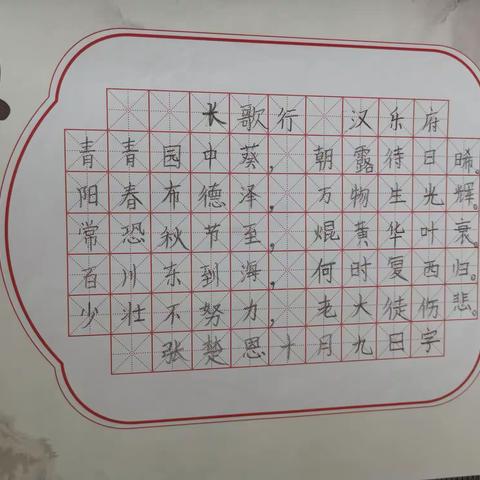 长歌行 汉乐府
青青园中葵，朝露待日晞。
阳春布德泽，万物生光辉。
常恐秋节至，焜黄华叶衰。
百川东到海，何时复西归。
少壮不努力，老大徒伤悲。
张楚恩十月九日字